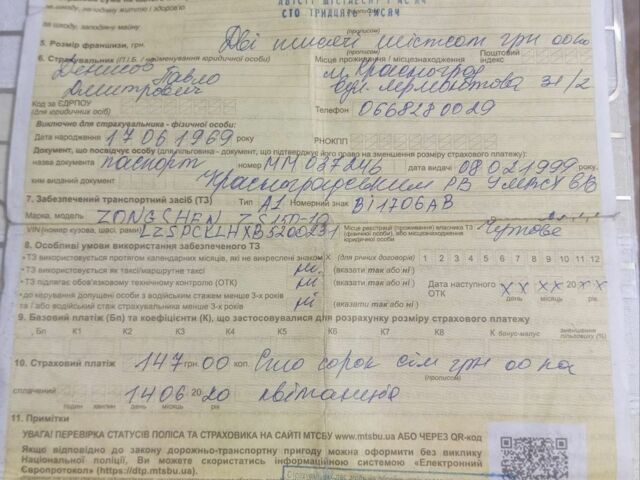 за шкоду, заподіяну життю і здоров'ю
СТО ТРИДЦЯТЬ ТИСЯЧ
за шкоду, заподіяну майну
(прописом)
5. Розмір франшизи, грн. Дві тисячі шістсот грн 00 коп
(прописом)
6. Страхувальник (П.І.Б. / найменування юридичної особи) Місце проживання / місцезнаходження Поштовий індекс
Денисов Павло м. Красноград
Дмитрович вул. Лермонтова 31/2
Код за ЄДРПОУ
(для юридичних осіб) Телефон 0668280029
Виключно для страхувальника - фізичної особи:
Дата народження 17 06 1969 року РНОКПП
Документ, що посвідчує особу (для пільговика - документ, що підтверджує його право на зменшення розміру страхового платежу)
назва документа паспорт номер ММ 037246 дата видачі 08 02 1999 року,
ким виданий документ Красноградським РВ УМВСУ
7. Забезпечений транспортний засіб (ТЗ) Тип А1 Номерний знак ВІ1706АВ
Марка, модель ZONGSHEN ZS150-10
VIN (номер кузова, шасі, рами) LZSPCKLHXB5200231 Місце реєстрації (проживання) власника ТЗ (фізичної особи), або місцезнаходження юридичної особи Чутове
8. Особливі умови використання забезпеченого ТЗ
• ТЗ використовується протягом календарних місяців, які не викреслені знаком X (для річних договорів) 1 2 3 4 5 6 7 8 9 10 11 12
• ТЗ використовується як таксі/маршрутне таксі ні (вказати так або ні)
• ТЗ підлягає обов'язковому технічному контролю (ОТК) ні (вказати так або ні) Дата наступного ОТК X X X X 20 X X
день місяць рік
• до керування допущені особи з водійським стажем менше 3-х років
та / або водійський стаж страхувальника менше 3-х років ні (вказати так або ні)
9. Базовий платіж (Бп) та коефіцієнти (К), що застосовувалися для розрахунку розміру страхового платежу
Бп К1 К2 К3 К4 К5 К6 К7 К8 К бонус-малус зменшення пільговику (%)
10. Страховий платіж 147 грн 00 коп. Сто сорок сім грн 00 коп
(прописом)
сплачений 14 06 20 20 квітанція
годин хвилин день місяць рік
11. Примітки
УВАГА! ПЕРЕВІРКА СТАТУСІВ ПОЛІСА ТА СТРАХОВИКА НА САЙТІ МТСБУ www.mtsbu.ua АБО ЧЕРЕЗ QR-КОД
Якщо відповідно до закону дорожньо-транспортну пригоду можна оформити без виклику
Національної поліції, Ви можете скористатись інформаційною системою «Електронний
Європротокол» (https://dtp.mtsbu.ua).